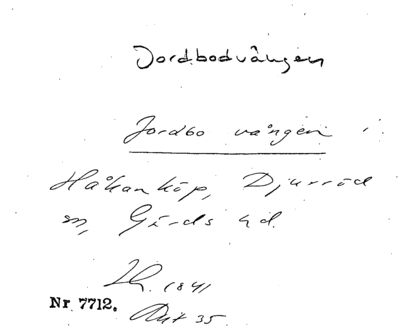 Jordbodvången
Jordbo vången i
Håkanköp, Djurröd
sn, Gärds hd.
1841
Nr 7712. Akt 35